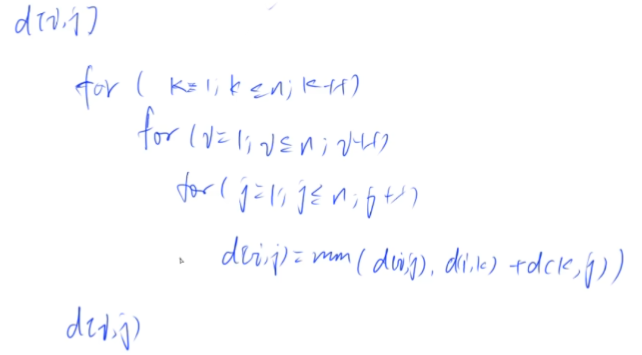 d[i,j]
for ( k=1; k≤n; k++)
for (i=1; i≤n; i++)
for ( j=1; j≤n; j++)
d(i,j) = min ( d(i,j), d(i,k) + d(k,j) )
d[i,j]